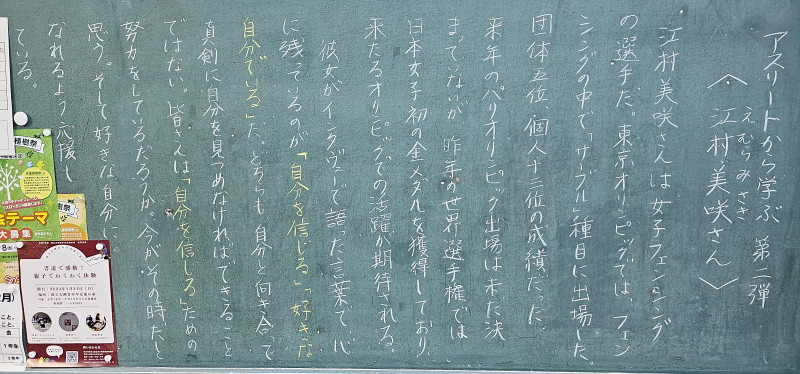 アスリートから学ぶ 第二弾
えむらみさき
〈江村美咲さん〉
江村美咲さんは女子フェンシング
の選手だ。東京オリンピックでは、フェン
シングの中で「サーブル」種目に出場した。
団体五位、個人十三位の成績だった。
来年のパリオリンピック出場は未だ決
まってないが、昨年の世界選手権では
日本女子初の金メダルを獲得しており、
来たるオリンピックでの活躍が期待される。
彼女がインタヴューで語った言葉で、心
に残っているのが「自分を信じる」「好きな
自分でいる」だ。どちらも自分と向き合って
真剣に自分を見つめなければできること
ではない。皆さんは「自分を信じる」ための
努力をしているだろうか。今がその時だと
思う。そして好きな自分に
なれるよう応援し
ている。
植樹祭
植樹祭
テーマ
大募集
書道で感動!
親子でわくわく体験